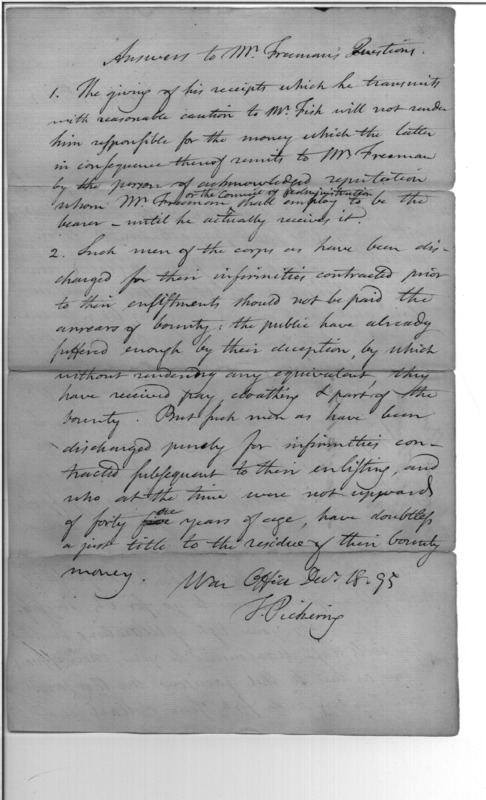 Answers to Mr. Freeman's Questions.
1. The giving of his receipts which he transmits
with reasonable caution to Mr. Fish will not render
him responsible for the money which the latter
in consequence thereof remits to Mr. Freeman
by the person of acknowledged reputation
or the Council of Administration
whom Mr. Freeman shall employ to be the
bearer – until he actually receives it.
2. Such men of the corps as have been dis-
charged for their infirmities contracted prior
to their enlistments should not be paid the
arrears of bounty: the public have already
suffered enough by their deception, by which
without rendering any equivalent, they
have received pay, cloathing & part of the
bounty. But such men as have been
discharged purely for infirmities con-
tracted subsequent to their enlisting, and
who at the time were not upwards
of forty years of age, have doubtless
a just title to the residue of their bounty
money.
War Office Decr. 18. 95
T. Pickering